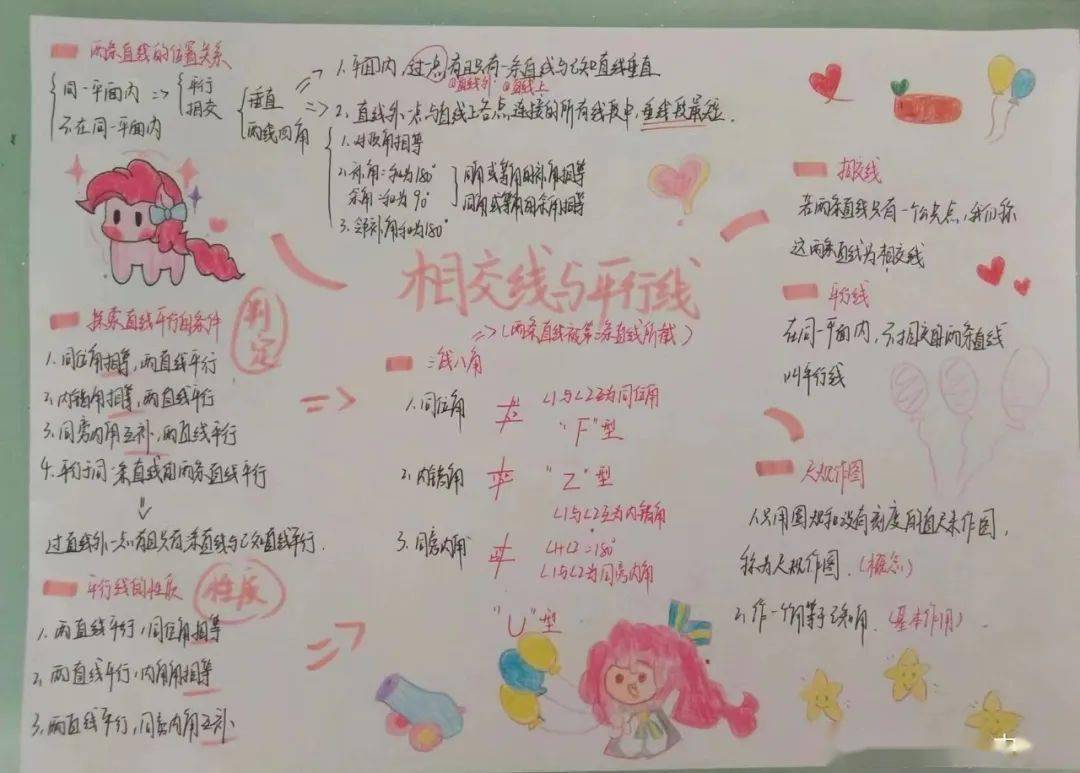 两条直线的位置关系
同一平面内 => 平行
相交
不在同一平面内
垂直
两线四角
=> 1. 平面内,过一点有且只有一条直线与已知直线垂直
①直线外 ②直线上
=> 2. 直线外一点与直线上各点连接的所有线段中,垂线段最短.
1. 对顶角相等
2. 补角:和为180°
余角:和为90°
同角或等角的补角相等
同角或等角的余角相等
3. 邻补角和为180°
相交线与平行线
探索直线平行的条件
判定
1. 同位角相等,两直线平行
2. 内错角相等,两直线平行
3. 同旁内角互补,两直线平行
4. 平行于同一条直线的两条直线平行
过直线外一点有且只有一条直线与已知直线平行.
平行线的性质
性质
1. 两直线平行,同位角相等
2. 两直线平行,内角角相等
3. 两直线平行,同旁内角互补
=> (两条直线被第三条直线所截)
三线八角
1. 同位角
∠1与∠2互为同位角
"F"型
2. 内错角
"Z"型
∠1与∠2互为内错角
3. 同旁内角
∠1与∠2为同旁内角
"U"型
相交线
若两条直线只有一个公共点,我们称
这两条直线为相交线
平行线
在同一平面内,不相交的两条直线
叫平行线
尺规作图
1. 只用圆规和没有刻度的直尺来作图,
称为尺规作图.(概念)
2. 作一个角等于已知角.(基本作用)